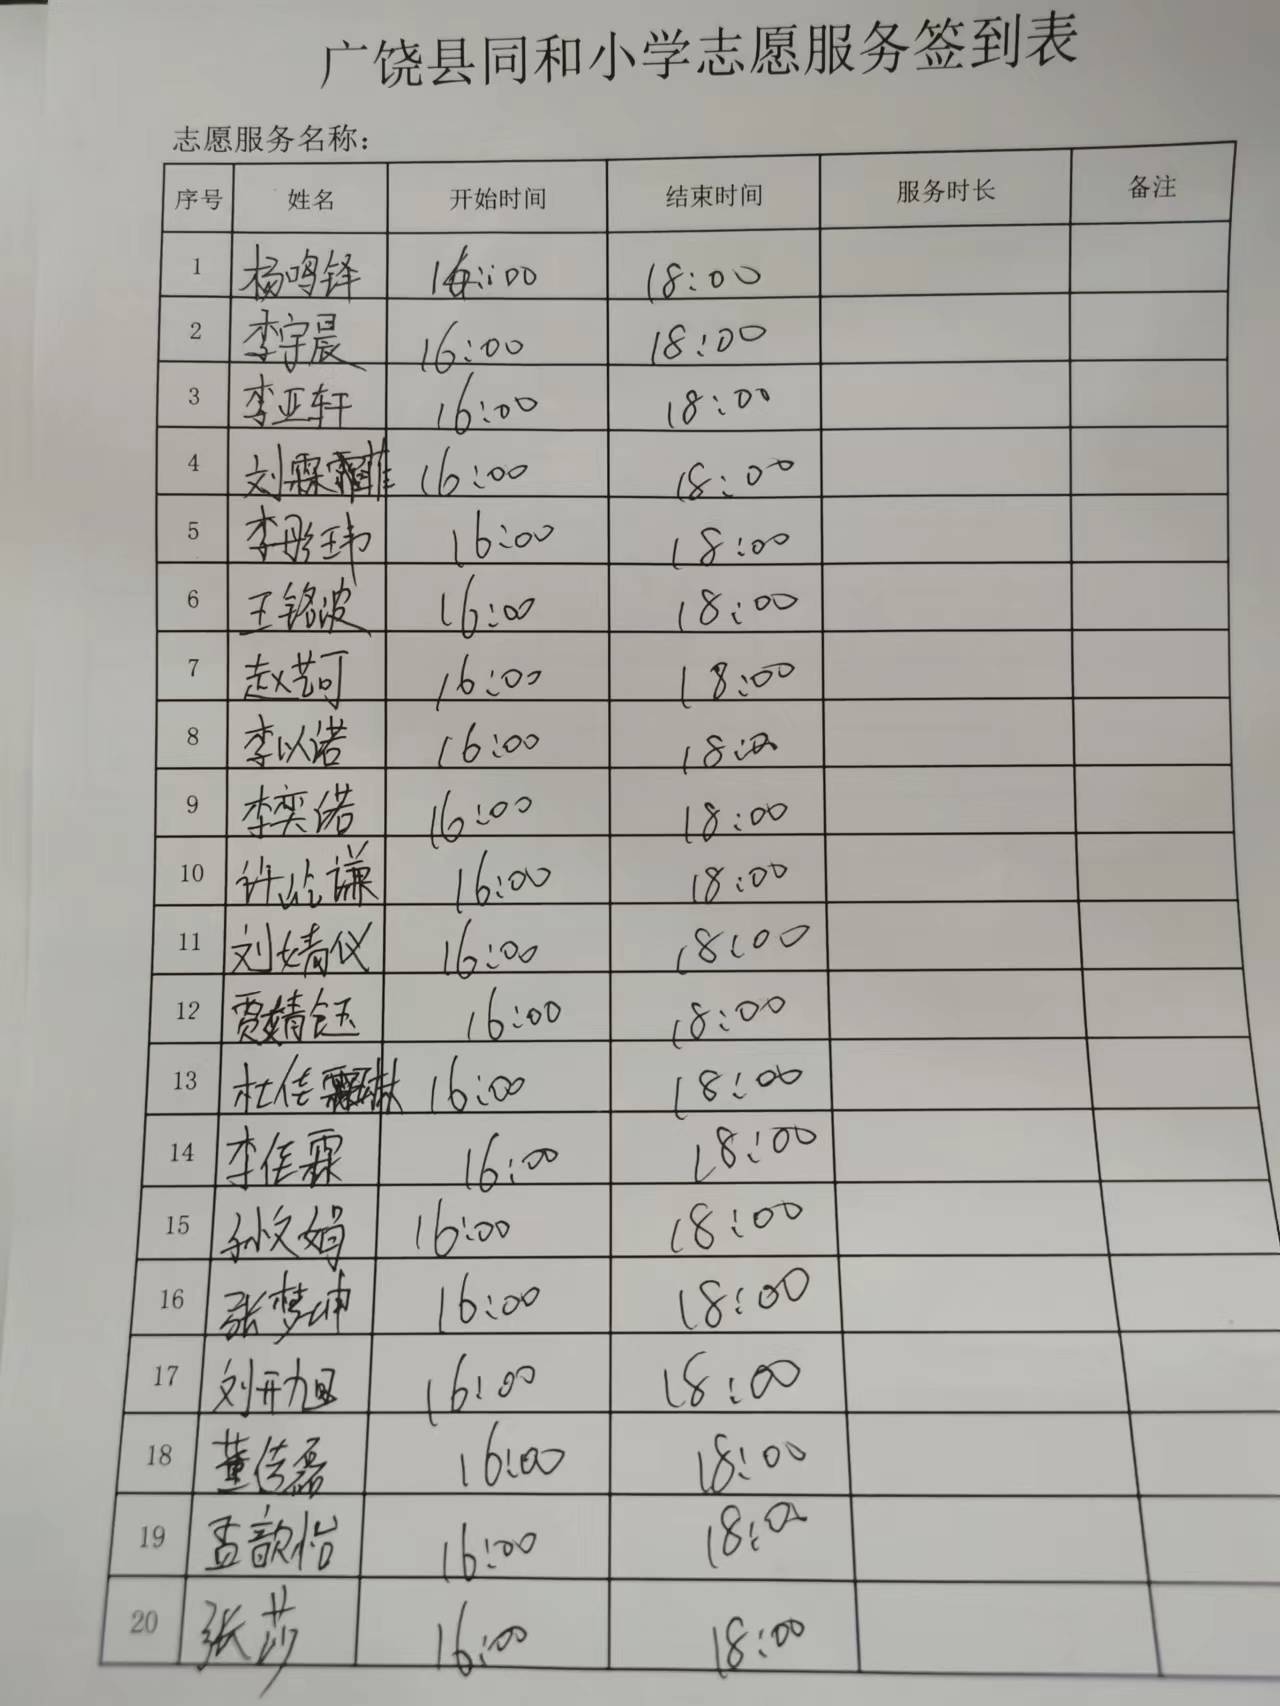 广饶县同和小学志愿服务签到表
志愿服务名称：
序号 姓名 开始时间 结束时间 服务时长 备注
1 杨鸣铎 16:00 18:00
2 李宇晨 16:00 18:00
3 李亚轩 16:00 18:00
4 刘霖菲 16:00 18:00
5 李彤玮 16:00 18:00
6 王铭波 16:00 18:00
7 赵艺可 16:00 18:00
8 李以诺 16:00 18:00
9 李奕偌 16:00 18:00
10 许屹谦 16:00 18:00
11 刘婧仪 16:00 18:00
12 贾婧钰 16:00 18:00
13 杜佳琳 16:00 18:00
14 李佳霖 16:00 18:00
15 孙文娟 16:00 18:00
16 张梦坤 16:00 18:00
17 刘开旭 16:00 18:00
18 董传磊 16:00 18:00
19 孟歆怡 16:00 18:00
20 张莎 16:00 18:00